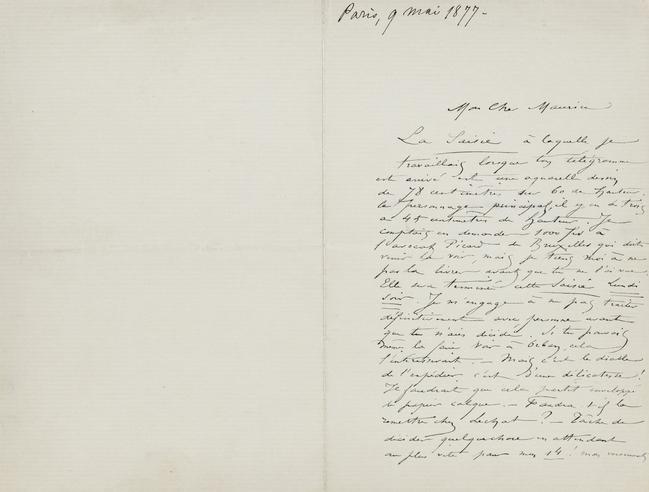 Paris, 9 mai 1877 -
Mon Cher Maurice
La Saisie à laquelle je
travaillais lorsque ton télégramme
est arrivé est une aquarelle dessin
de 78 centimètres sur 60 de hauteur.
le personnage principal, il y en a trois
a 45 centimètres de hauteur. Je
comptais en demander 1000 frs à
l'avocat Picard de Bruxelles qui doit
venir la voir, mais je tiens moi à ne
pas la livrer avant que tu ne l'aies vue.
Elle sera terminée cette Saisie Lundi
soir. Je m'engage à ne pas traiter
définitivement avec personne avant
que tu n'aies décidé. Si tu pouvais
même la faire voir à cela
l'intéresserait. - Mais c'est le diable
de l'expédier c'est d'une délicatesse !
Il faudrait que cela partit enveloppé
de papier calque. - Faudra t-il la
remettre chez Lechat ? - Tâche de
décider quelque chose en attendant
au plus vite pour mes 14 ! mon